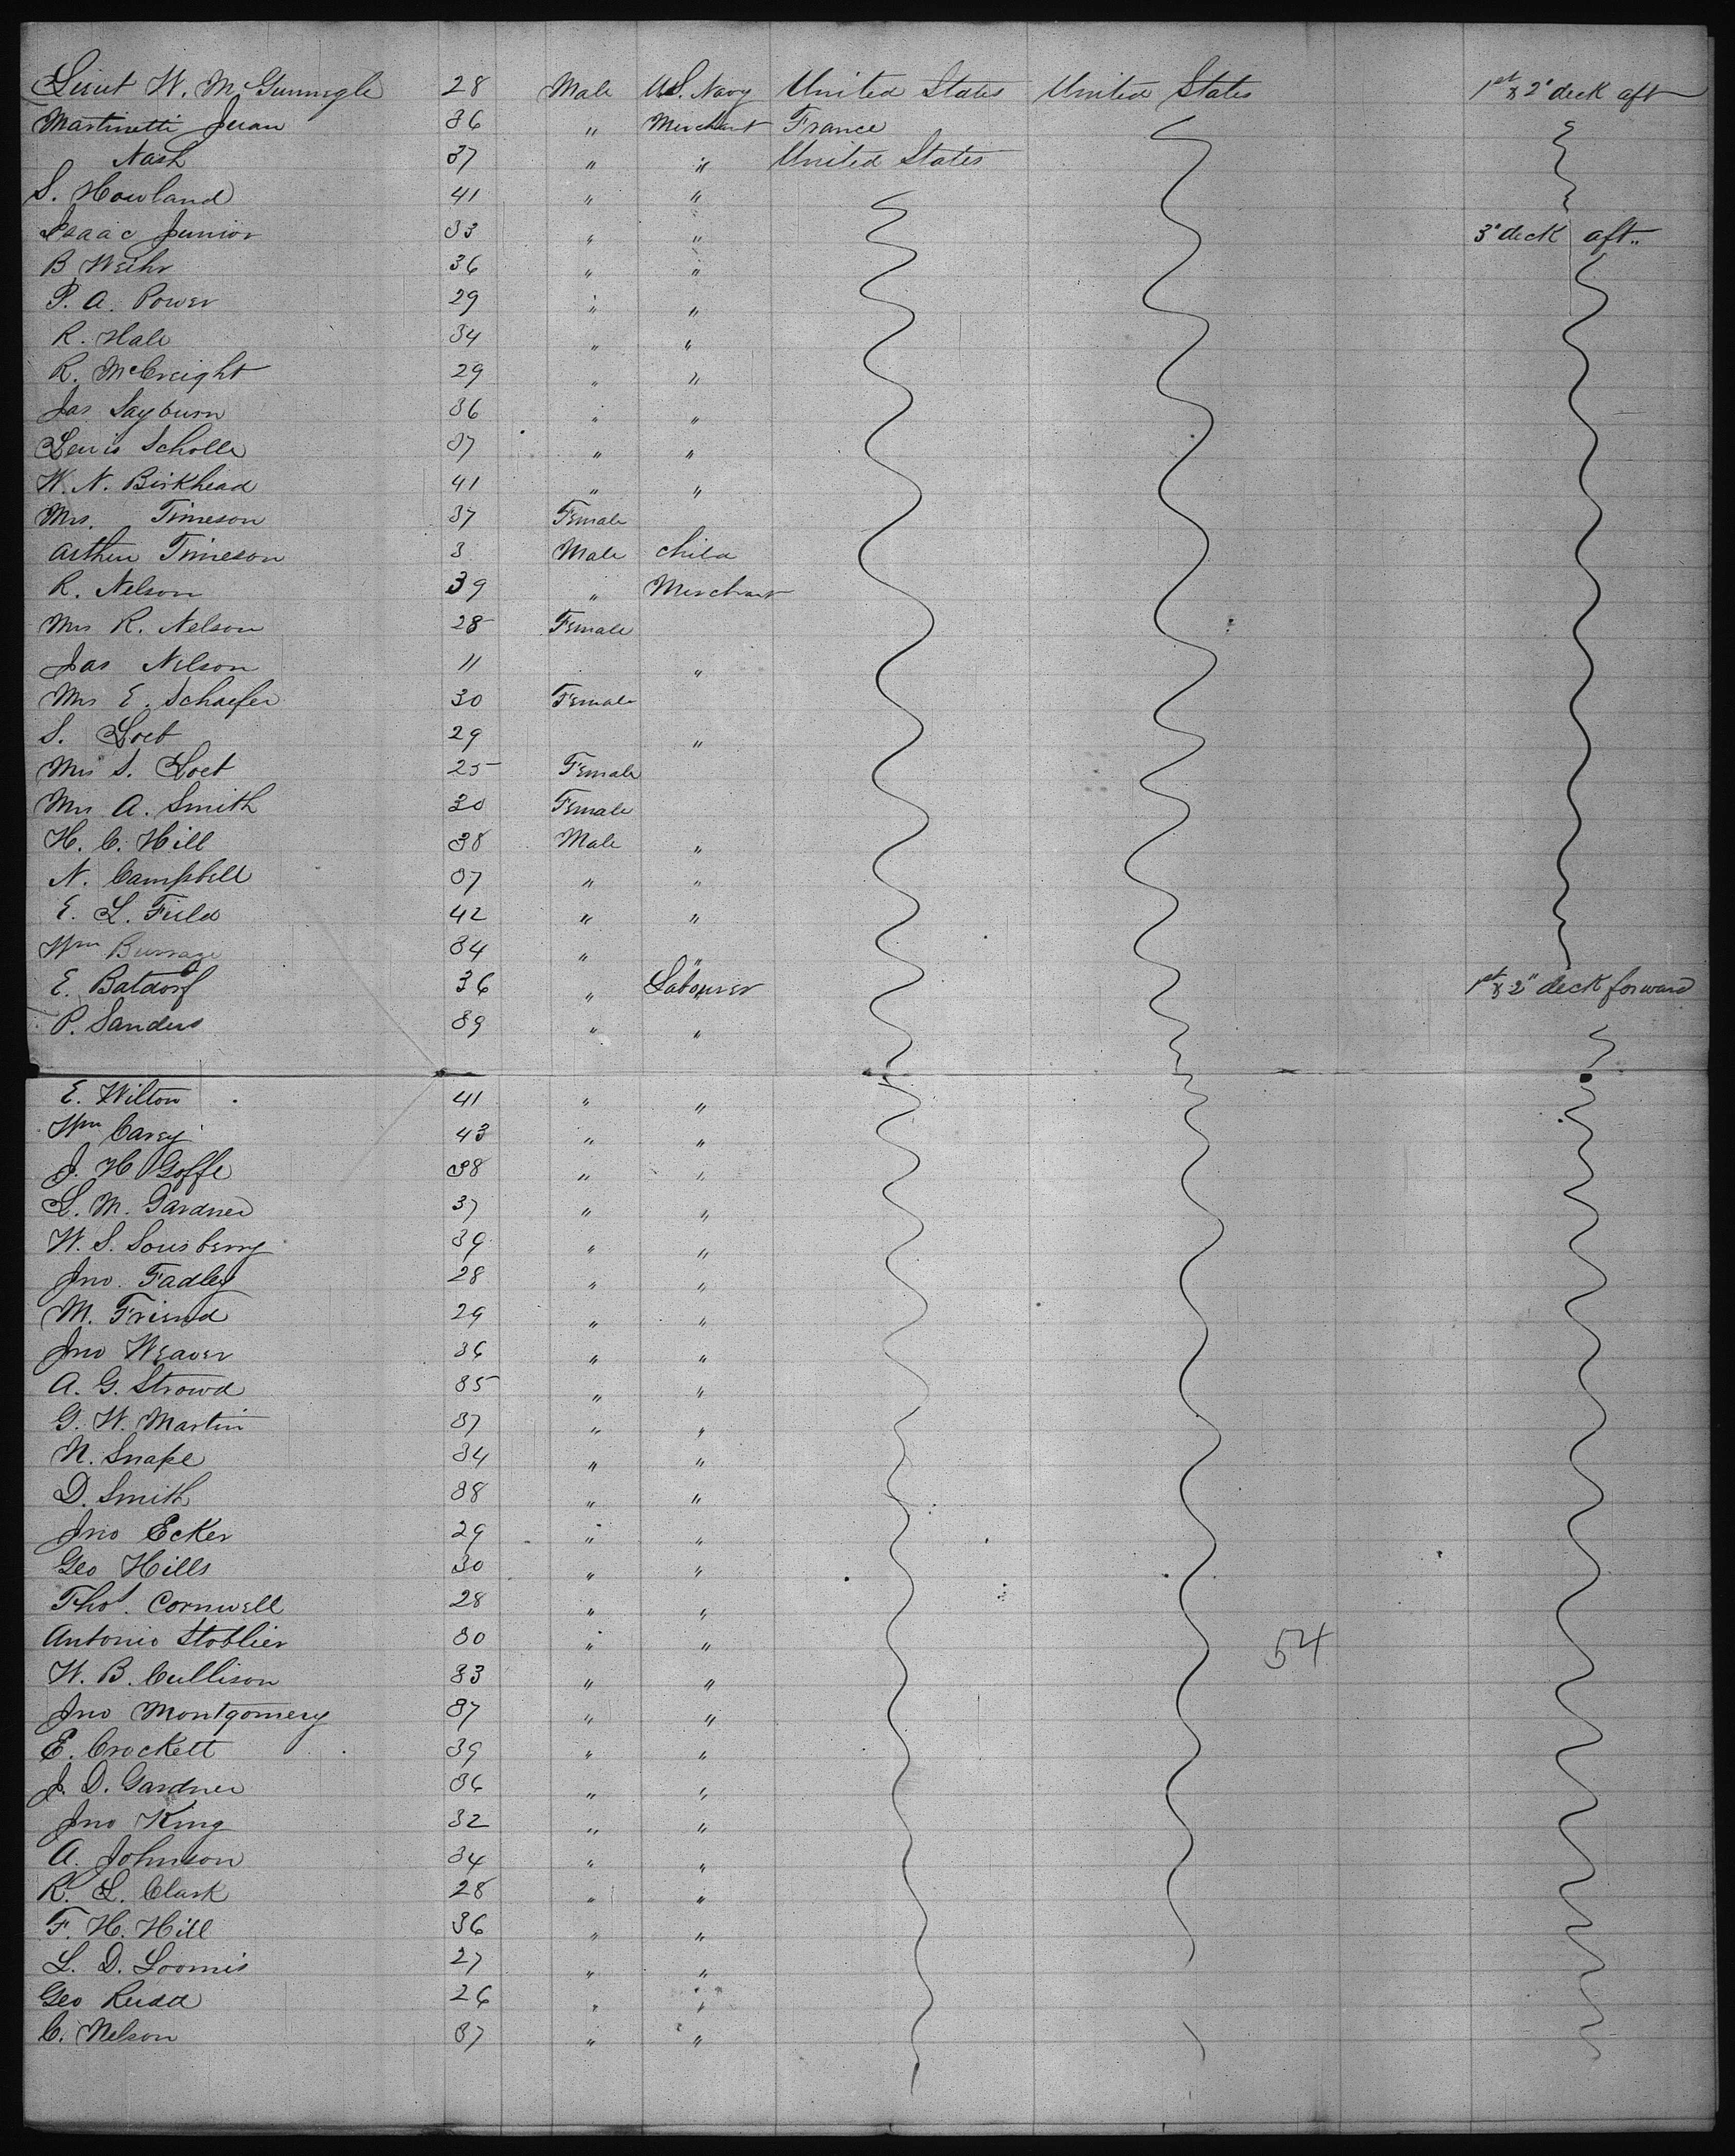 Lieut W. McGunnegle 28 Male U.S. Navy United States United States 1st & 2d deck aft
Martinetti Juan 36 " Merchant France
Nash 37 " " United States
S. Howland 41 " "
Isaac Junior 33 " " 3d deck aft
B Weihr 36 " "
P. A. Power 29 " "
R. Hale 34 " "
R. McCreight 29 " "
Jas Layburn 36 " "
Lewis Scholle 37 " "
W. N. Birkhead 41 " "
Mrs. Timeson 37 Female
Arthur Timeson 3 Male Child
R. Nelson 39 " Merchant
Mrs R. Nelson 28 Female
Jas Nelson 11 "
Mrs E. Schaefer 30 Female
S. Loet 29 "
Mrs S. Loet 25 Female
Mrs A. Smith 30 Female
H. C. Hill 38 Male "
N. Campbell 37 " "
E. L. Field 42 " "
Wm Burrage 34 " "
E. Batdorf 36 " Labourer 1st & 2" deck forward
P. Sanders 39 " "
E. Wilton 41 " "
Wm Carey 43 " "
J. H Goffe 38 " "
L. M. Gardner 37 " "
W. S. Sousberry 39 " "
Jno. Fadley 28 " "
M. Friend 29 " "
Jno Weaver 36 " "
A. G. Strowd 35 " "
G. W. Martin 37 " "
N. Snape 34 " "
D. Smith 38 " "
Jno Ecker 29 " "
Geo Hills 30 " "
Thos. Cornwell 28 " "
Antonio Stoblier 30 " "
54
W. B. Cullison 33 " "
Jno Montgomery 37 " "
E. Crockett 39 " "
J. D. Gardner 36 " "
Jno King 32 " "
A. Johnson 34 " "
R. L. Clark 28 " "
F. H. Hill 36 " "
L. D. Loomis 27 " "
Geo Rudd 26 " "
C. Nelson 37 " "